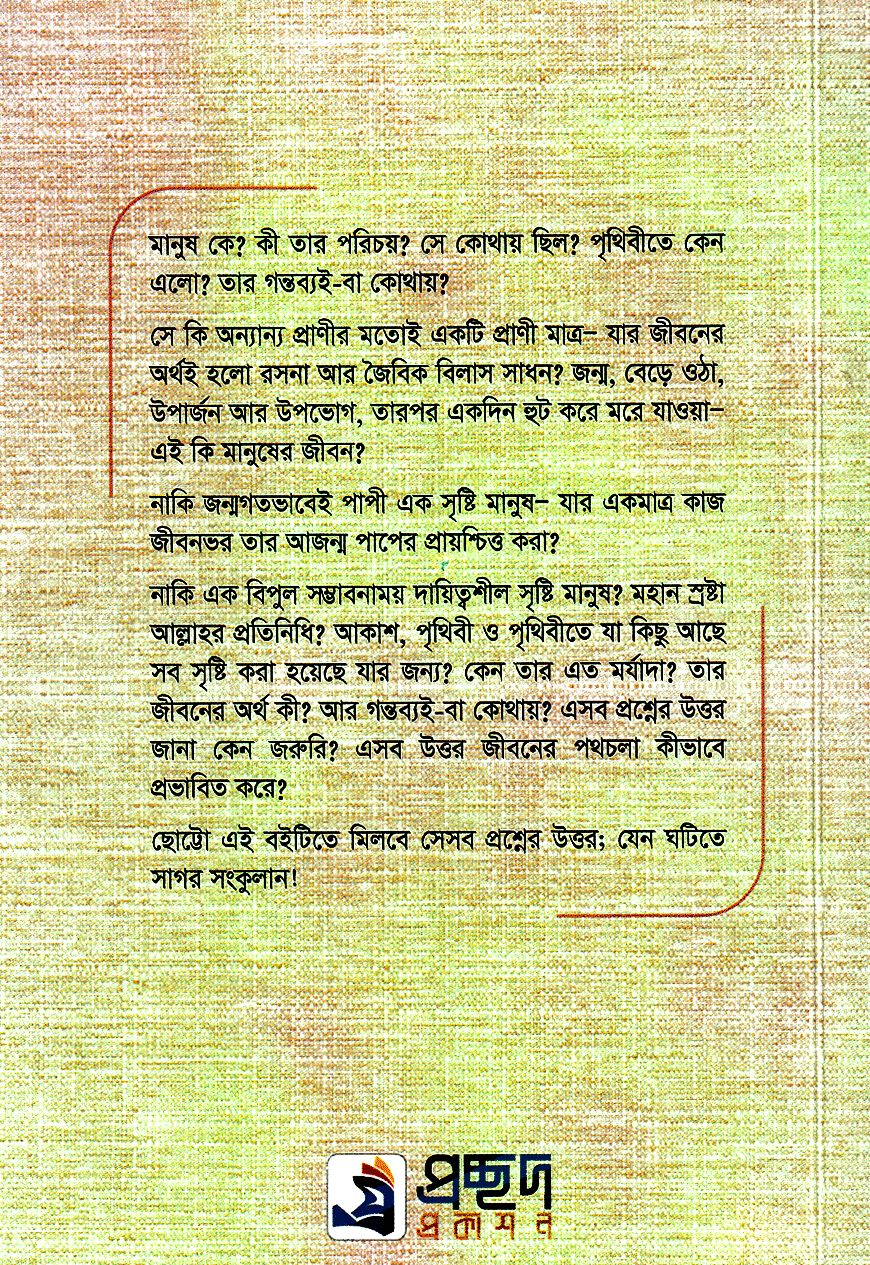 মানুষ কে? কী তার পরিচয়? সে কোথায় ছিল? পৃথিবীতে কেন
এলো? তার গন্তব্যই-বা কোথায়?
সে কি অন্যান্য প্রাণীর মতোই একটি প্রাণী মাত্র– যার জীবনের
অর্থই হলো রসনা আর জৈবিক বিলাস সাধন? জন্ম, বেড়ে ওঠা,
উপার্জন আর উপভোগ, তারপর একদিন হুট করে মরে যাওয়া–
এই কি মানুষের জীবন?
নাকি জন্মগতভাবেই পাপী এক সৃষ্টি মানুষ– যার একমাত্র কাজ
জীবনভর তার আজন্ম পাপের প্রায়শ্চিত্ত করা?
নাকি এক বিপুল সম্ভাবনাময় দায়িত্বশীল সৃষ্টি মানুষ? মহান স্রষ্টা
আল্লাহর প্রতিনিধি? আকাশ, পৃথিবী ও পৃথিবীতে যা কিছু আছে
সব সৃষ্টি করা হয়েছে যার জন্য? কেন তার এত মর্যাদা? তার
জীবনের অর্থ কী? আর গন্তব্যই-বা কোথায়? এসব প্রশ্নের উত্তর
জানা কেন জরুরি? এসব উত্তর জীবনের পথচলা কীভাবে
প্রভাবিত করে?
ছোট্টো এই বইটিতে মিলবে সেসব প্রশ্নের উত্তর; যেন ঘটিতে
সাগর সংকুলান!
প্রচ্ছদ
প্রকাশন